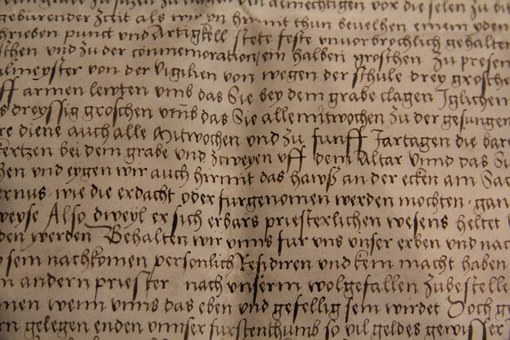 almechtigen vor die selen zu bit
geburender Zceit als wir yn hir mit thun bevelhen einem yden
hrieben punct und Artigkell stete feste unvorbrochlich gehalten
schen und zu der commemoration ein halben groschen Zu presen
almeyster von der vigilien von wegen der schule drey grosche
ff armen lewten umb das Sie bey dem grabe clagen Iglichen
s dreyssig groschen umb das Sie alle mitwochen zu der gesungen
re diene auch alle Mitwochen und zu funff Jartagen die bar
kertzen bei dem grabe und zweyen uff dem Altar umb das Si
hen und eygen wir auch hirmit das hawß an der ecken am Sac
ernus, wie die erdacht oder furgenomen werden mochten, gan
weyse Also, dweyl er sich erbars priesterlichen wesens heltet
den werden Behalten wir unns fur uns unser erben und nac
so sein nachkomen personlich Residiren und kein macht haben
n andern priester nach unserm wolgefallen zubestelle
men wenn unns das eben und gefellig sein wirdet Doch ge
rn gelegen enden unnser furstenthumb so vil geldes gewisser